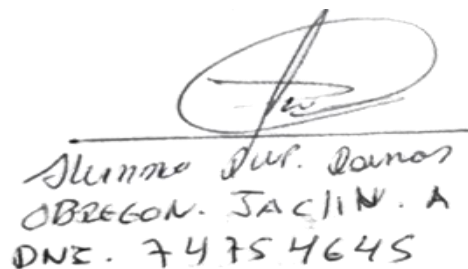 Alumno Dup. Ramos
OBREGON. JACLIN. A
DNI. 74754645